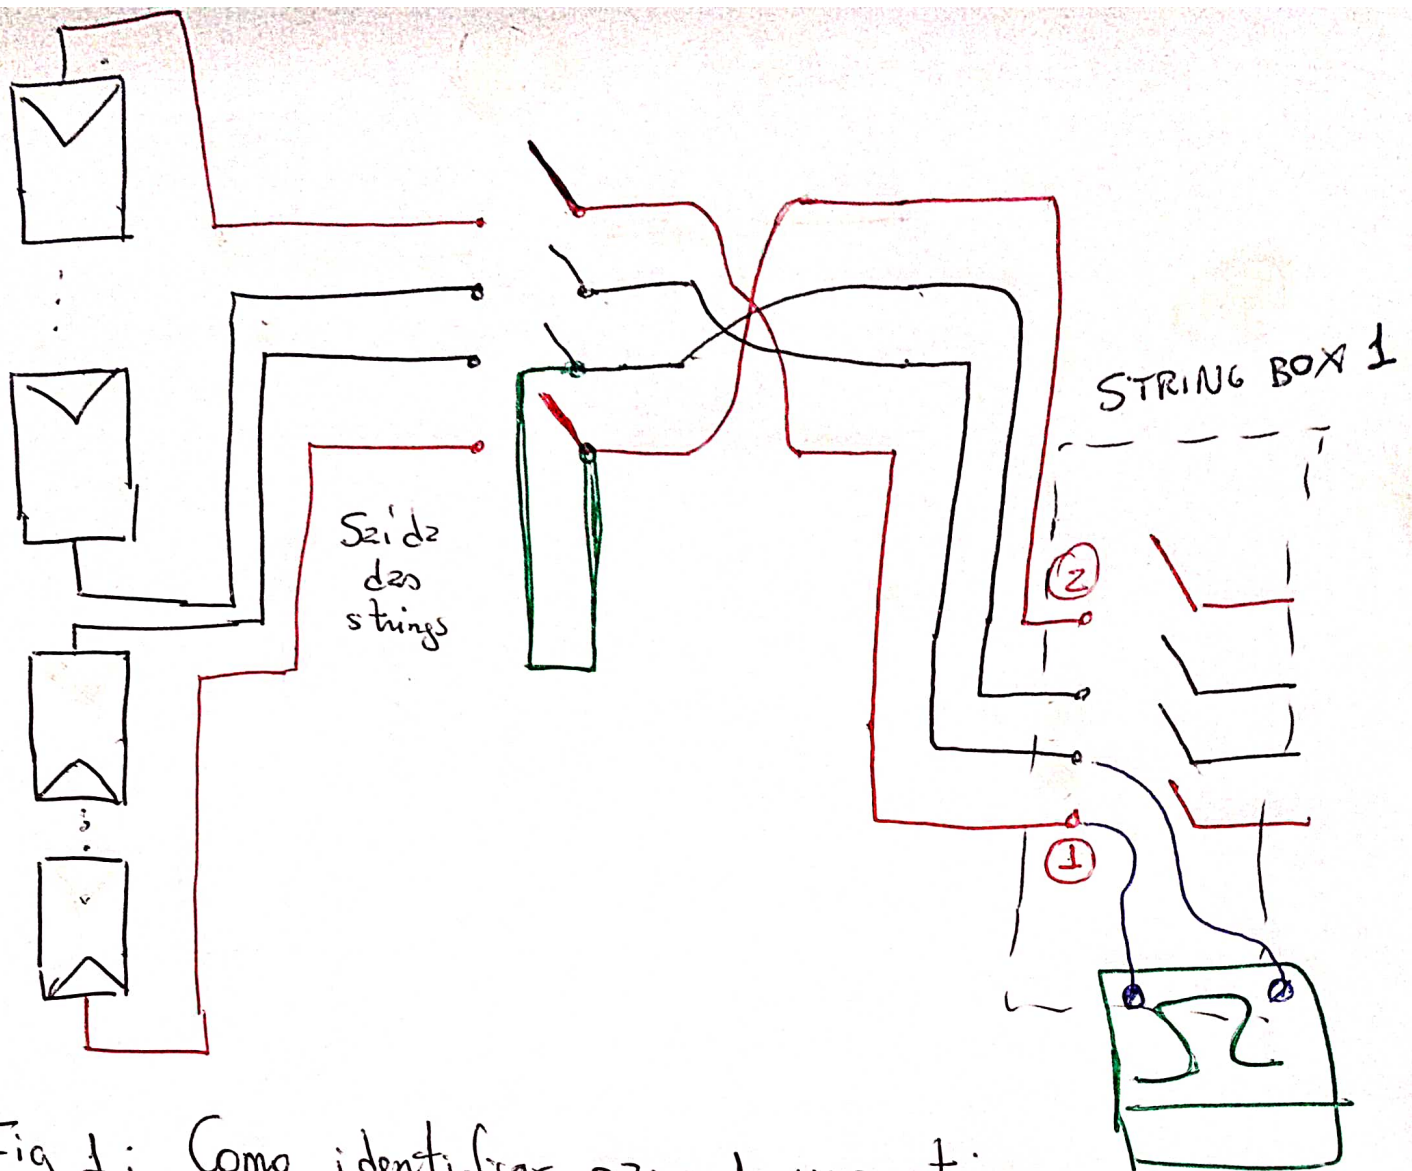 STRING BOX 1
Saída
das
strings
2
1
Ω
Fig 1: Como identificar